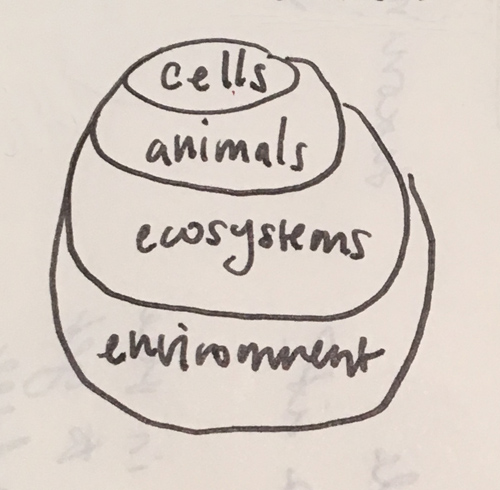 cells
animals
ecosystems
environment